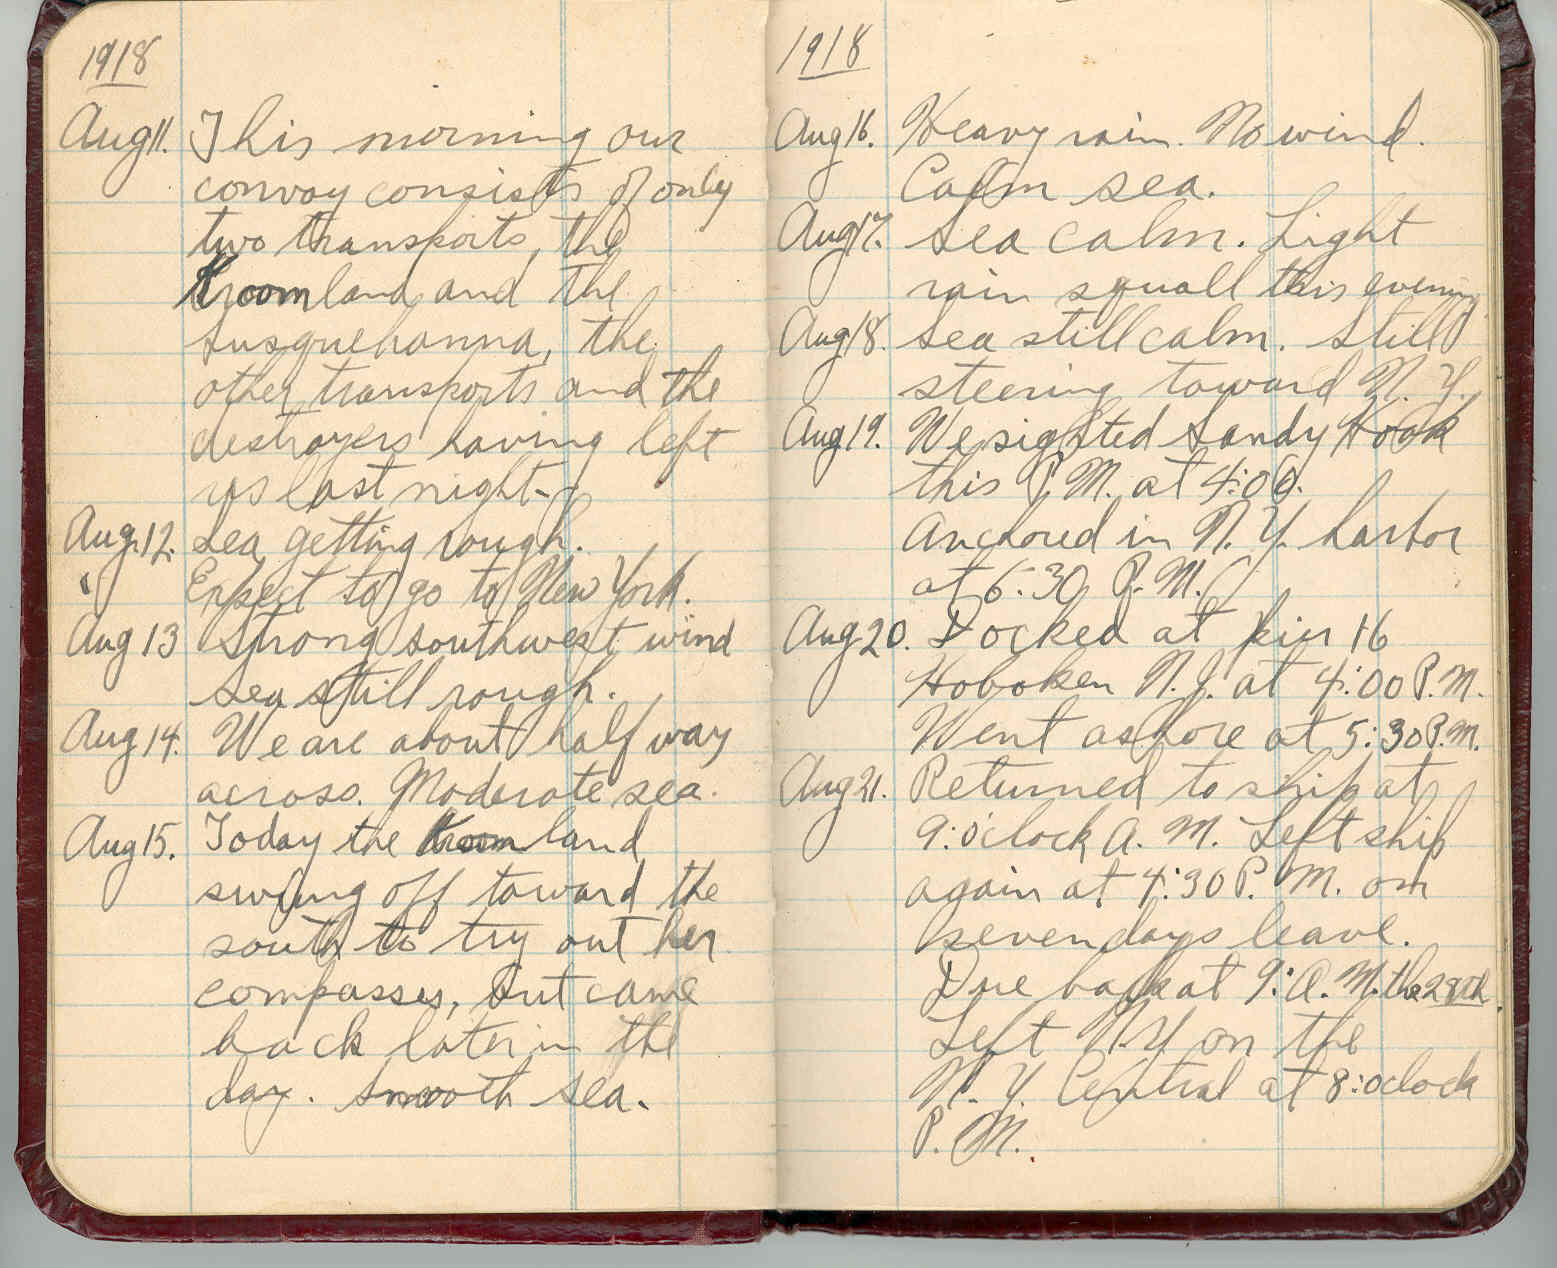 1918
Aug 11. This morning our
convoy consists of only
two transports, the
Kroonland and the
Susquehanna, the
other transports and the
destroyers having left
us last night.
Aug. 12. Sea getting rough.
" Expect to go to New York.
Aug 13 Strong southwest wind
sea still rough.
Aug 14. We are about half way
across. Moderate sea.
Aug 15. Today the Kroonland
swung off toward the
south to try out her
compasses, but came
back later in the
day. Smooth sea.
1918
Aug 16. Heavy rain. No wind.
Calm sea.
Aug 17. Sea calm. Light
rain squall this evening
Aug 18. Sea still calm. Still
steering toward N. Y.
Aug 19. We sighted Sandy Hook
this P. M. at 4:00.
Anchored in N. Y. harbor
at 6:30 P. M.
Aug 20. Docked at pier 16
Hoboken N. J. at 4:00 P. M.
Went ashore at 5:30 P. M.
Aug 21. Returned to ship at
9:oclock A. M. Left ship
again at 4:30 P. M. on
seven days leave.
Due back at 9: A. M. the 28th.
Left N.Y. on the
N. Y. Central at 8:oclock
P. M.